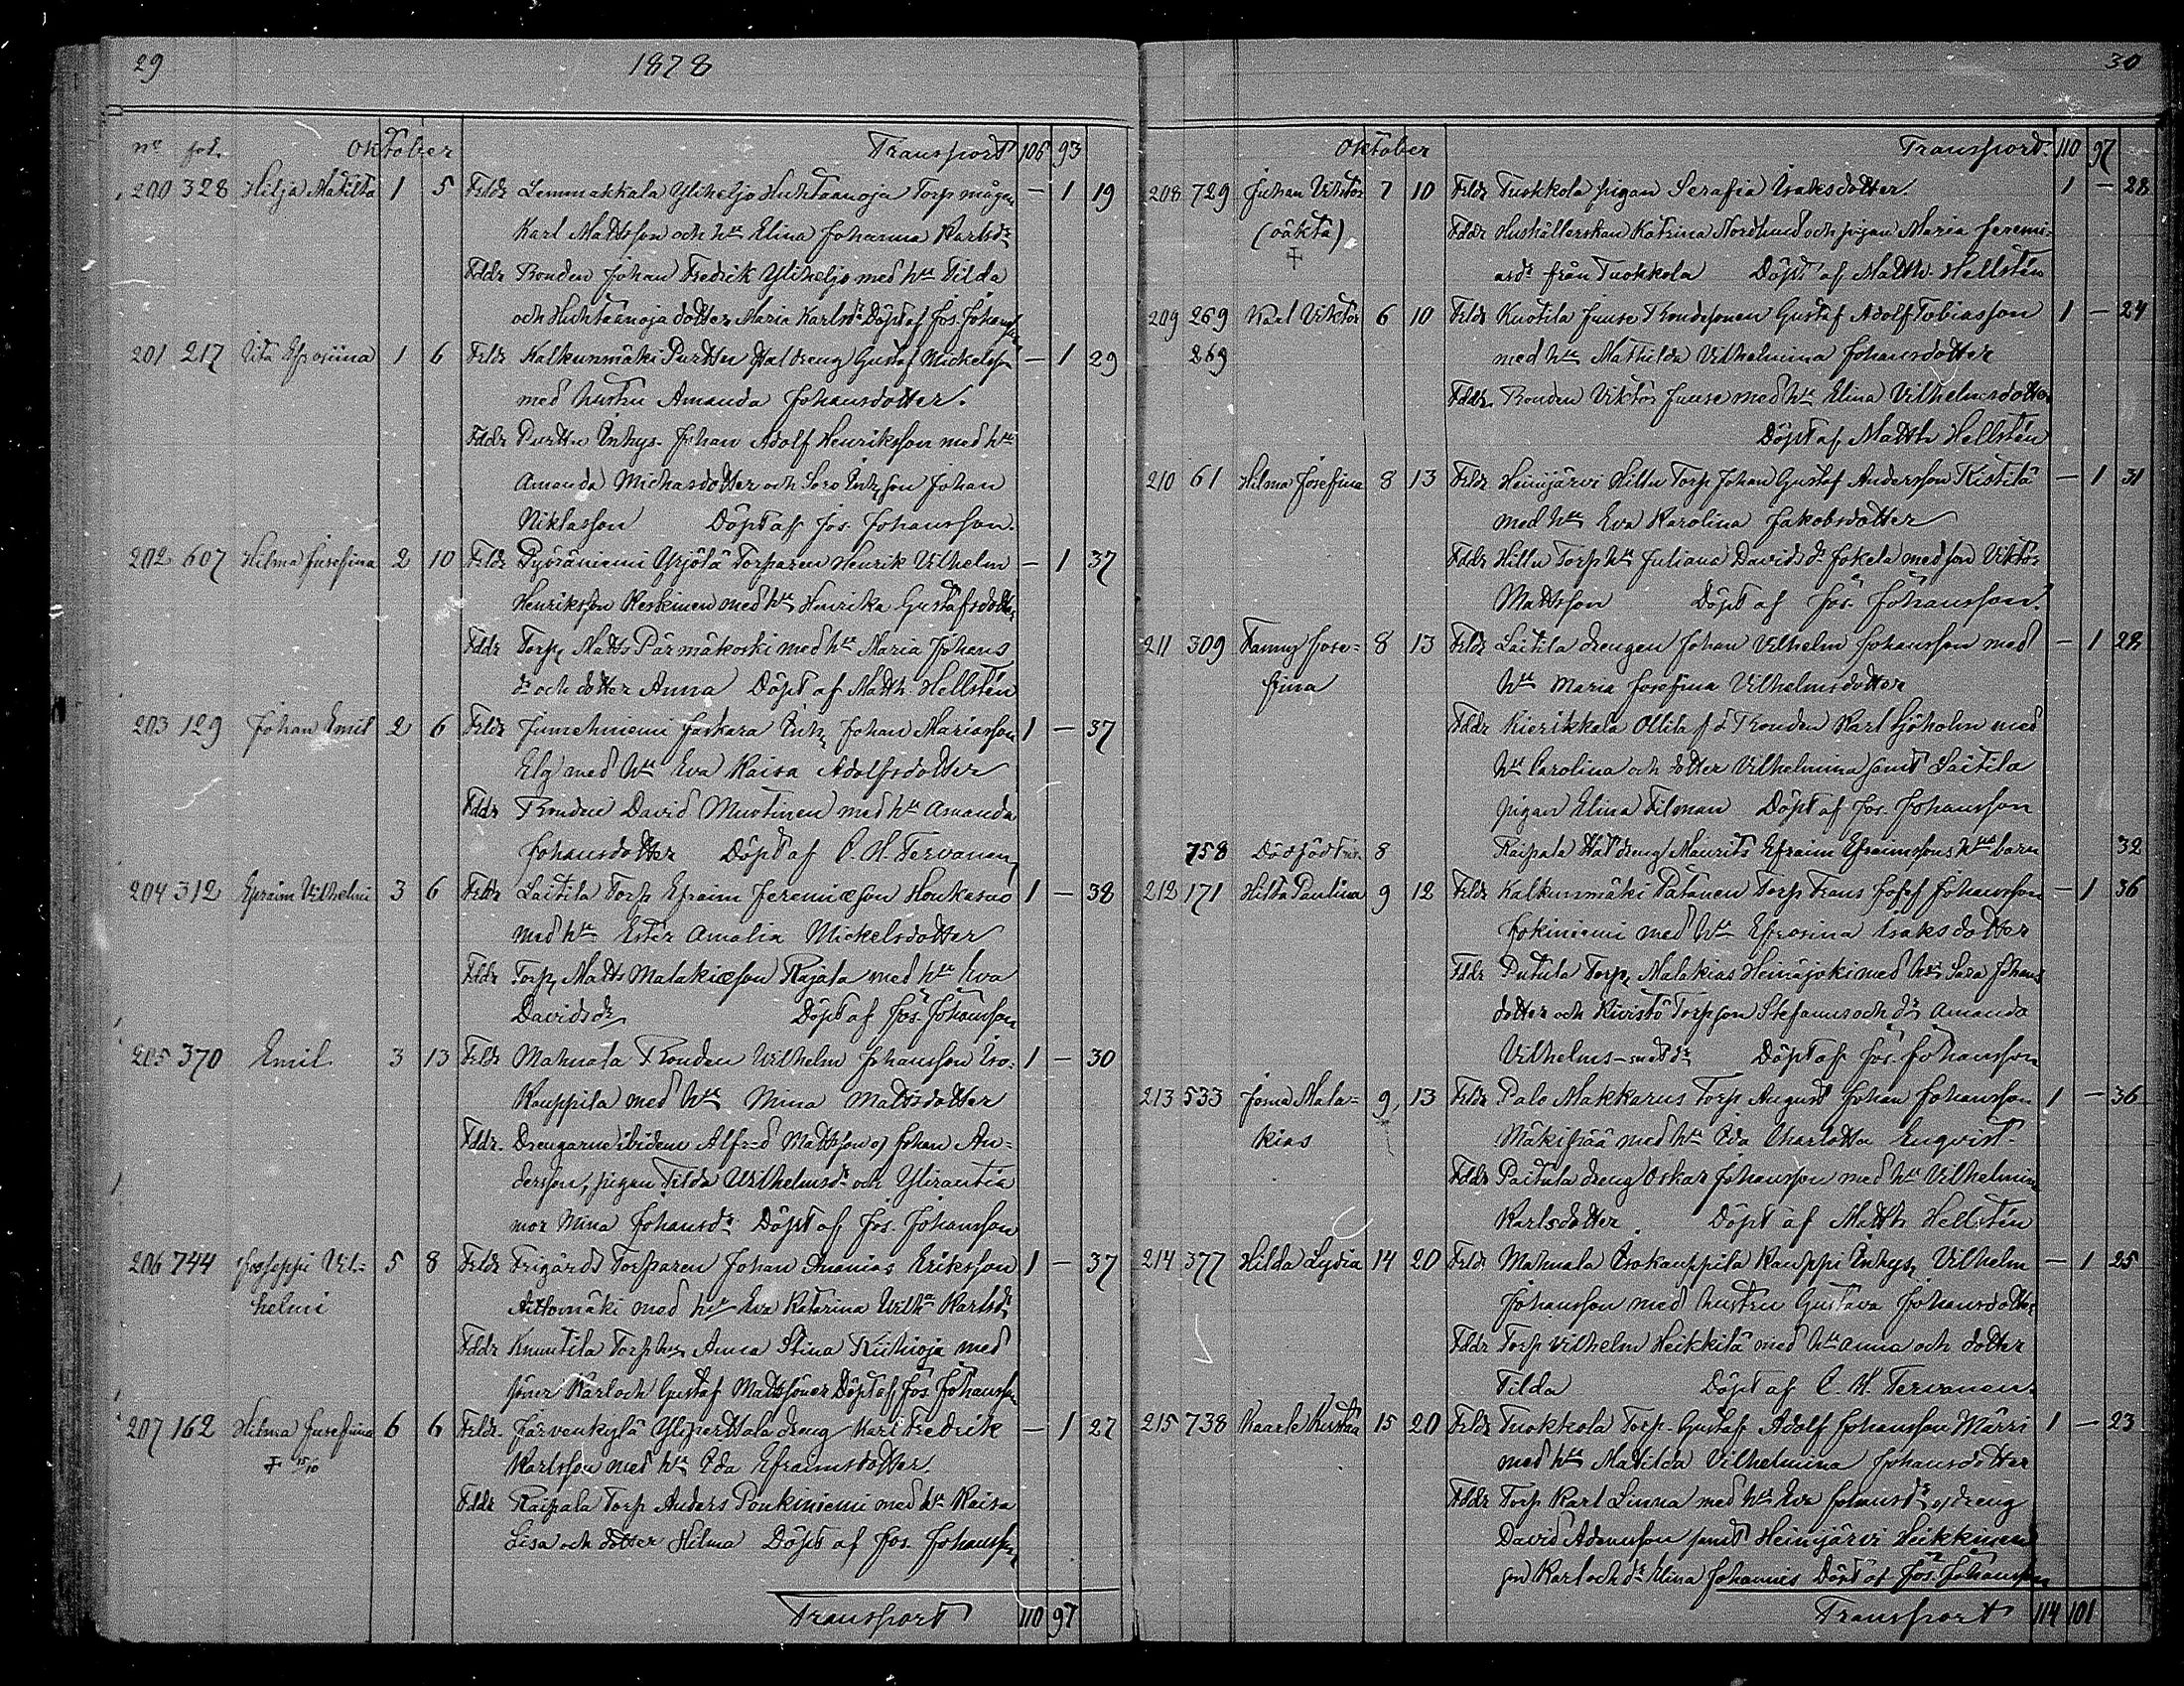 29 1878
nº fol. Oktober Transport 106 93
200 328 Hilja Matilta 1 5 Frldr Lemmakkala Yliheljo Huhtaanoja Torp mågen — 1 19
Karl Mattsson och hu Elina Johanna Karlsdr
Fddr Bonden Johan Fredrik Yliheljo med hu Tilda
och Huhtaanoja dotter Maria Karlsdr Döpt af Jos. Johansson
201 217 Iita Efrosiina 1 6 Frldr Kalkunmäki Purttu Hal dreng Gustaf Mickelss — 1 29
med hustru Amanda Johansdotter.
Fddr Purttu Inhys. Johan Adolf Henriksson med hu
Amanda Michaelsdotter och Soro Inh. son Johan
Niklasson Döpt af Jos. Johansson.
202 607 Hilma Josefina 2 10 Frldr Pyöräniemi Yrjölä Torparen Henrik Vilhelm — 1 37
Henriksson Keskinen med hu Henrika Gustafsdotter
Fddr Torp. Matts Pärmäkoski med hu Maria Johans
dr och dotter Anna Döpt af Matth. Hellstén
203 129 Johan Emil 2 6 Frldr Jumehniemi Jaskara Inh. Johan Mariasson 1 — 37
Elg med hu Eva Kaisa Adolfsdotter
Fddr Bonden David Mustinen med hu Amanda
Johansdotter Döpt af C. H. Tervanen
204 312 Efraim Vilhelmi 3 6 Frldr Laitila Torp Efraim Jeremiæson Honkasuo 1 — 38
med hu Ester Amalia Mickelsdotter
Fddr Torp. Matts Malakiæson Rajala med hu Eva
Davidsdr Döpt af Jos. Johansson
205 370 Emil. 3 13 Frldr Mahnala Bonden Vilhelm Johansson Iso- 1 — 30
Kauppila med hu Mina Mattsdotter
Fddr. Drengarne ibidem Alfred Mattsson o Johan An=
dersson, pigan Tilda Vilhelmsdr och Ylirantia
mor Mina Johansdr Döpt af Jos. Johansson
206 744 Jooseppi Vil= 5 8 Frldr Frigärds Torparen Johan Ananias Eriksson 1 — 37
helmi Aittomäki med hu Eva Katarina Vilh. Karlsdr
Fddr Knuutila Torp hu Anna Stina Riihioja med
söner Karl och Gustaf Mattssöner Döpt af Jos. Johansson
207 162 Hilma Josefiina 6 6 Frldr Järvenkylä Ylipertttala dreng Karl Fredrik — 1 27
+ 15/10 Karlsson med hu Ida Efraimsdotter.
Fddr Raipala Torp Anders Ponkiniemi med hu Kaisa
Lisa och dotter Hilma Döpt af Jos. Johansson
Transport 110 97
30
Oktober Transport 110 97
208 729 Juhan Viktor 7 10 Frldr Tuokkola pigan Serafia Isaksdotter. 1 — 28
(oäkta) Fddr Hushållerskan Katrina Nordlund och pigan Maria Jeremi-
+ asdr från Tuokkola Döpt af Matth. Hellstén
209 269 Karl Viktor 6 10 Frldr Kuotila Juuse Bondesonen Gustaf Adolf Tobiasson 1 — 24
269 med hu Mathilda Vilhelmina Johansdotter
Fddr. Bonden Viktor Juuse med hu Elina Vilhelmsdotter
Döpt af Matth Hellstén
210 61 Hilma Josefina 8 13 Frldr Heinijärvi Hillu Torp Johan Gustaf Andersson Ristilä — 1 31
med hu Eva Karolina Jakobsdotter
Fddr Hillu Torp hu Juliana Davidsdr Jokela med son Viktor
Mattsson Döpt af Jos. Johansson.
211 309 Fanny Jose= 8 13 Frldr Laitila drengen Johan Vilhelm Johansson med — 1 28
fina hu Maria Josefina Vilhelmsdotter
Fddr Kierikkala Ollila f d Bonden Karl Sjöholm med
hu Carolina och dotter Vilhelmina samt Laitila
pigan Elina Filman Döpt af Jos. Johansson
758 Dödfödt 8 Raipala Hal dreng Mauritz Efraim Efraimssons hus barn 32
212 171 Hilta Pauliina 9 12 Frldr Kalkunmäki Patanen Torp Frans Josef Johansson — 1 36
Jokiniemi med hu Efrosina Isaksdotter
Fddr Putula Torp. Malakias Heinäjoki med hu Sara Johans
dotter och Kivistö Torp son Stefanus och dr Amanda
Vilhelms Döpt af Jos. Johansson
213 533 Joma Mala= 9 13 Frldr Palo Makkarus Torp August Johan Johansson 1 — 36
kias Mäkipää med hu Ida Charlotta Enqvist.
Fddr Paitula dreng Oskar Johansson med hu Vilhelmina
Karlsdotter. Döpt af Matth Hellstén
214 377 Hilda Lydia 14 20 Frldr Mahnala Isokauppila Kauppi Inhys Vilhelm — 1 25
Johansson med hustru Gustava Johansdotter
Fddr Torp Vilhelm Heikkilä med hu Anna och dotter
Tilda Döpt af C. H. Tervanen.
215 738 Kaarle Kustaa 15 20 Frldr Tuokkola Torp. Gustaf Adolf Johansson Märri 1 — 23
med hu Matilda Vilhelmina Johansdotter
Fddr Torp Karl Linna med hu Eva Johansdr o dreng
David Adamsson samt Heinijärvi Heikkinen
son Karl och dr Mina Johannis Döpt af Jos. Johansson
Transport 114 101